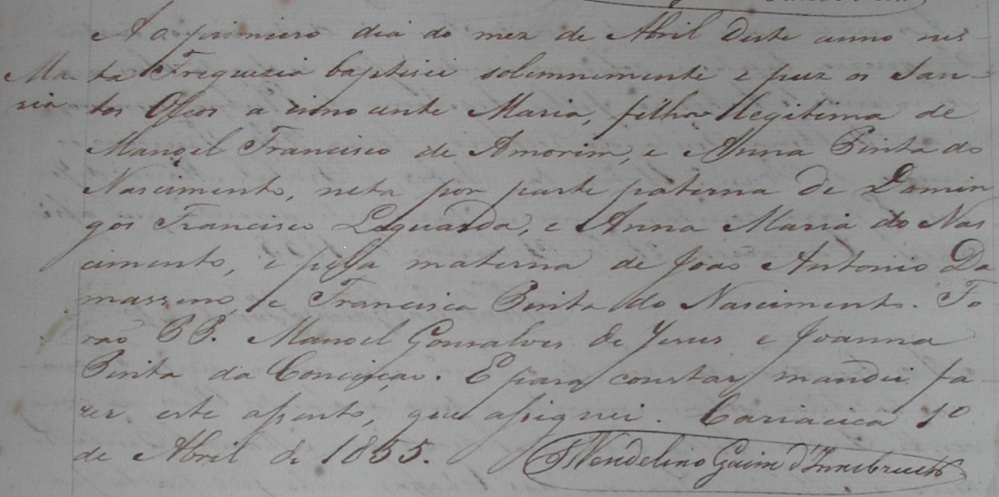 Ao primeiro dia do mez de Abril deste anno nes-
Ma- ta Freguezia baptisei solemnemente e puz os San-
ria tos Oleos a innocente Maria, filha legitima de
Manoel Francisco de Amorim, e Anna Pinta do
Nascimento, neta por parte paterna de Domin
gos Francisco Laguarda, e Anna Maria do Nas
cimento, e pela materna de João Antonio Da
masseno, e Francisca Pinta do Nascimento. Fo
rão PP. Manoel Gonsalves de Jesus e Joanna
Pinta da Conceição. E para constar mandei fa
zer este assento, que assignei. Cariacica 1º
de Abril de 1855.
Wendelino Gaim d'Innsbruck